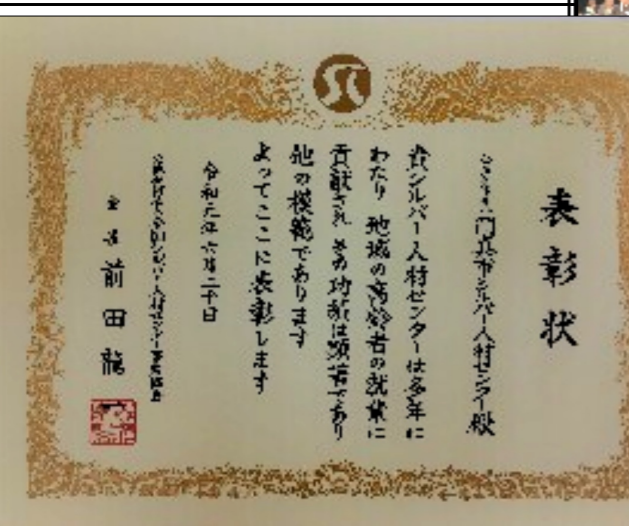 表彰状
門真市シルバー人材センター殿
貴シルバー人材センターは多年に
わたり 地域の高齢者の就業に
貢献され その功績は顕著であり
他の模範であります
よってここに表彰します
令和元年六月二十日
シルバー人材センター事業協会
会長 前田